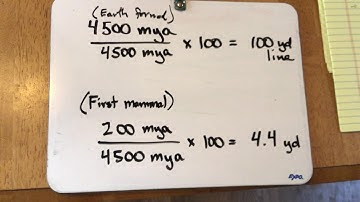 (Earth formed)
4500 mya
4500 mya × 100 = 100 yd line
(First mammal)
200 mya
4500 mya × 100 = 4.4 yd
EXPO